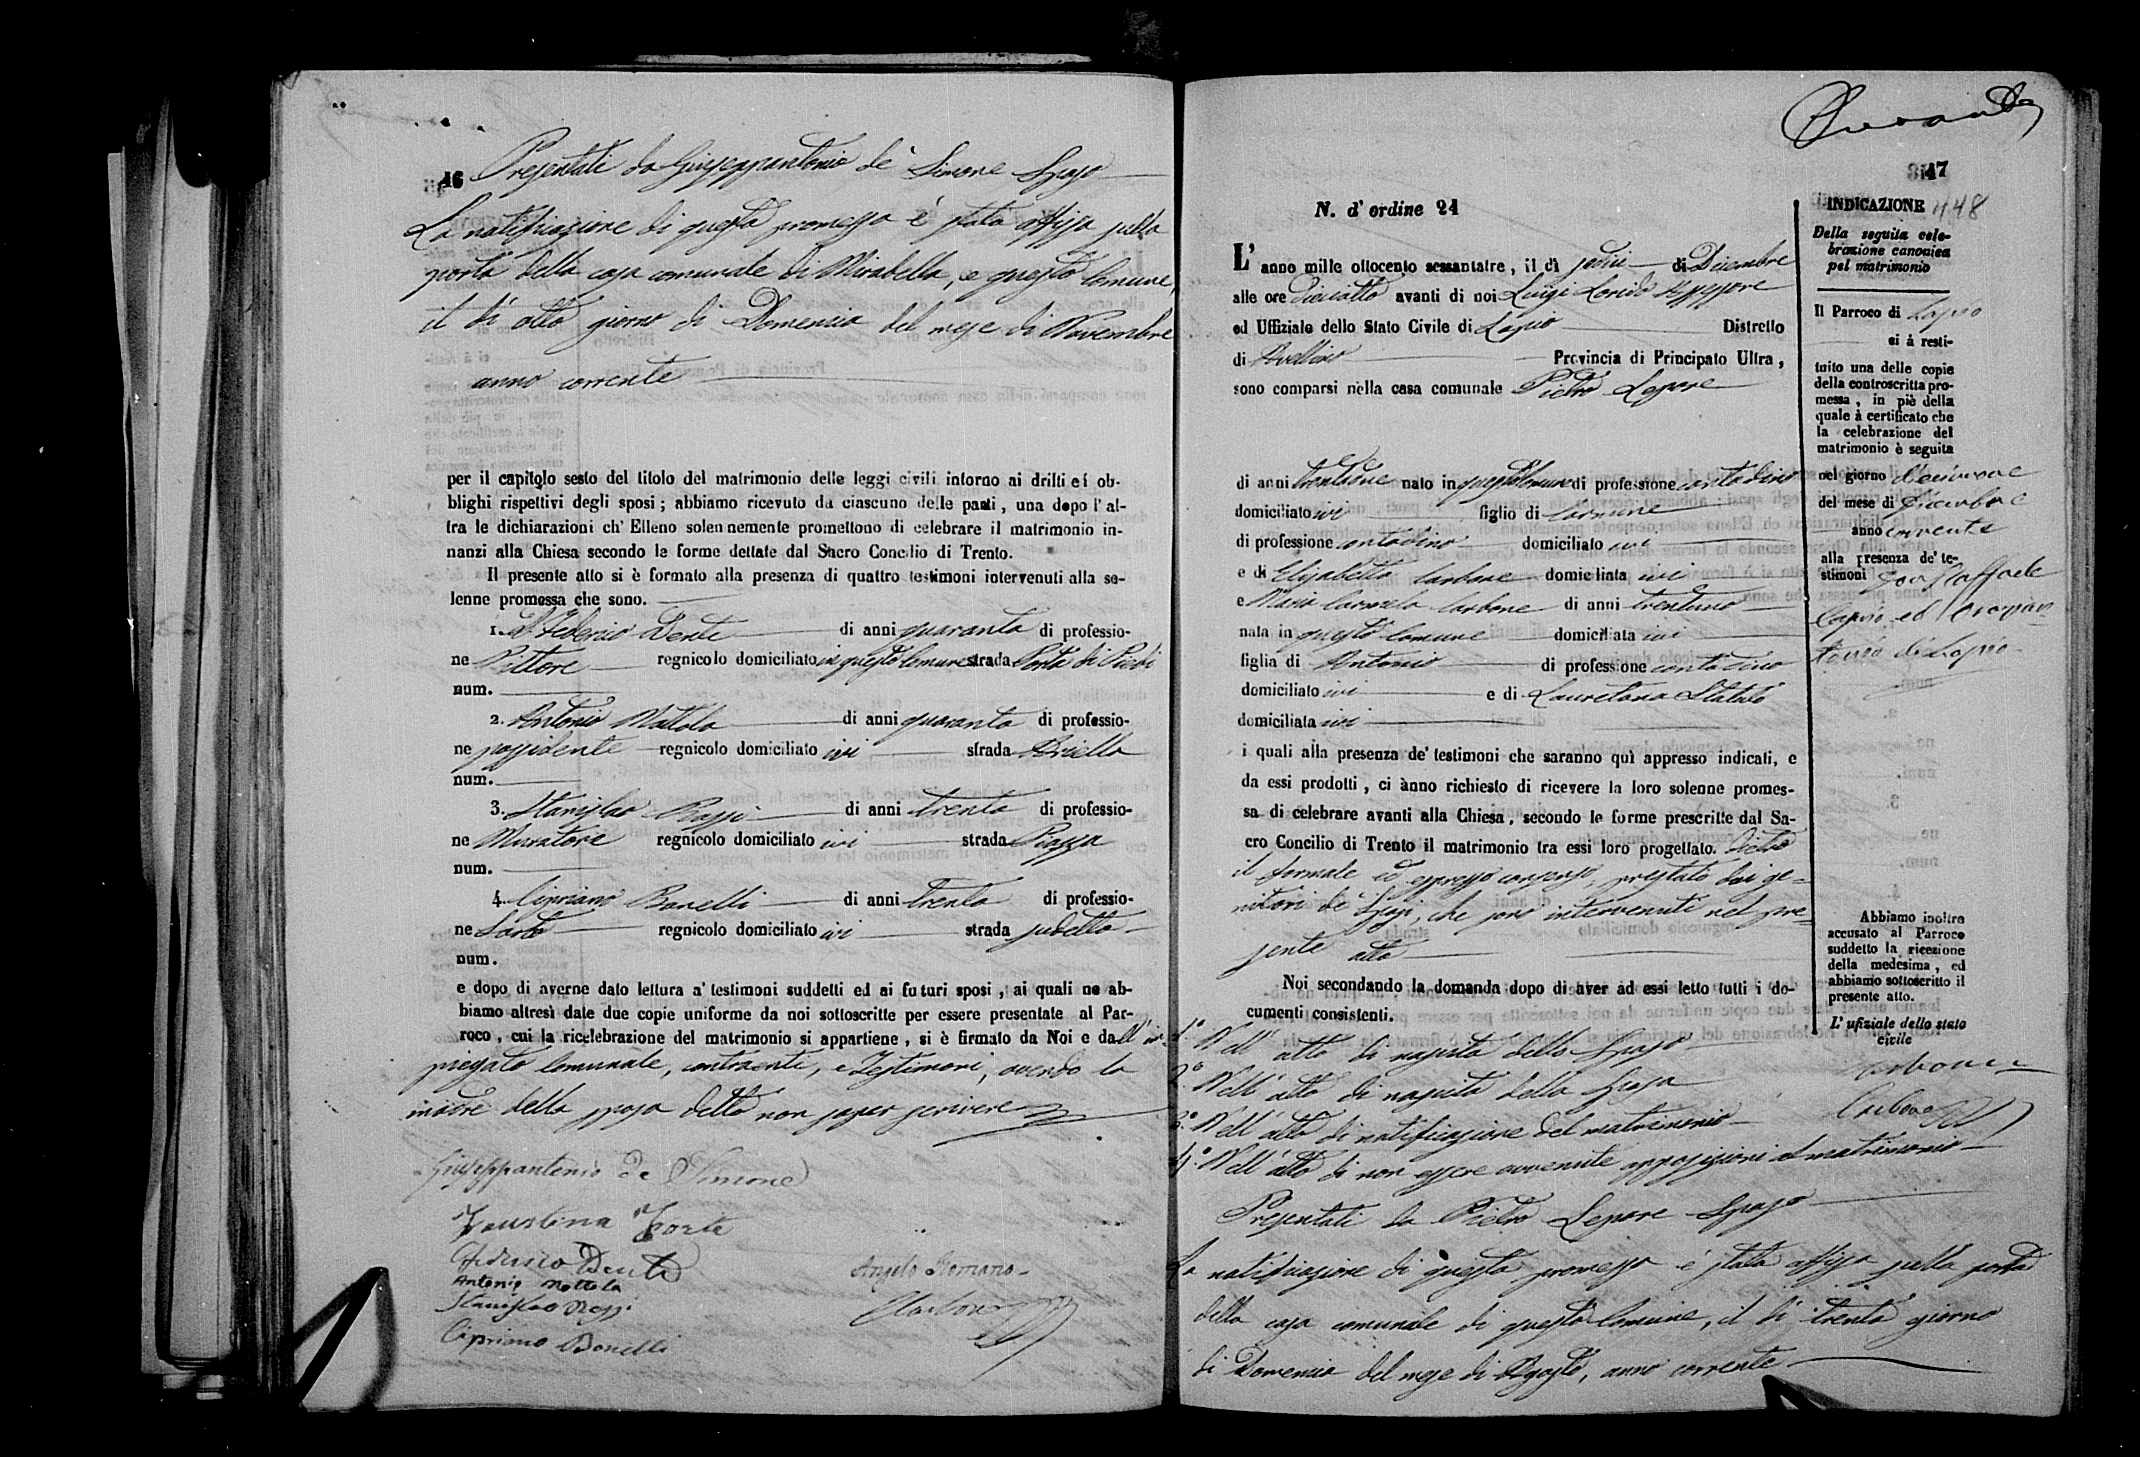 46
Presentati da Giuseppantonio de Simone Sposo
La notificazione di questa promessa è stata affissa sulla
porta della casa comunale di Mirabella, e questo Comune,
il dì otto giorno di Domenica del mese di Novembre
anno corrente
per il capitolo sesto del titolo del matrimonio delle leggi civili intorno ai dritti ed ob-
blighi rispettivi degli sposi ; abbiamo ricevuto da ciascuno delle parti , una dopo l' al-
tra le dichiarazioni ch' Elleno solennemente promettono di celebrare il matrimonio in-
nanzi alla Chiesa secondo le forme dettate dal Sacro Concilio di Trento.
Il presente atto si è formato alla presenza di quattro testimoni intervenuti alla so-
lenne promessa che sono.
1. D. Federico Dente di anni quaranta di professio-
ne Pittore regnicolo domiciliato in questo Comune strada Porta di Piedi
num.
2. Antonio Nottola di anni quaranta di professio-
ne possidente regnicolo domiciliato ivi strada
num.
3. Stanislao di anni trenta di professio-
ne Muratore regnicolo domiciliato ivi strada Piazza
num.
4. Cipriano Bonelli di anni trenta di professio-
ne Sarto regnicolo domiciliato ivi strada sudetta
num.
e dopo di averne dato lettura a' testimoni suddetti ed ai futuri sposi , ai quali ne ab-
biamo altresì date due copie uniforme da noi sottoscritte per essere presentate al Par-
roco , cui la ricelebrazione del matrimonio si appartiene , si è firmato da Noi e dall' im-
piegato Comunale, contraenti, e Testimoni, avendo la
madre della sposa detto non saper scrivere
Giuseppantonio de Simone
Faustina Forte
Federico Dente
Antonio Nottola
Stanislao
Cipriano Bonelli
Angelo Romano
Carbone
47
448
N. d' ordine 24
L' anno mille ottocento sessantatre , il dì sedici di Dicembre
alle ore diciotto avanti di noi Luigi Assessore
ed Uffiziale dello Stato Civile di Lapio Distretto
di Avellino Provincia di Principato Ultra ,
sono comparsi nella casa comunale Pietro Lepore
di anni trentadue nato in questo Comune di professione contadino
domiciliato ivi figlio di Carmine
di professione contadino domiciliato ivi
e di Elisabetta Carbone domiciliata ivi
e Maria Carmela Carbone di anni trentuno
nata in questo Comune domiciliata ivi
figlia di Antonio di professione contadino
domiciliato ivi e di Lauretana
domiciliata ivi
i quali alla presenza de' testimoni che saranno quì appresso indicati, e
da essi prodotti , ci ànno richiesto di ricevere la loro solenne promes-
sa di celebrare avanti alla Chiesa , secondo le forme prescritte dal Sa-
cro Concilio di Trento il matrimonio tra essi loro progettato. Dietro
il formale ed espresso consenso, prestato dai ge-
nitori de' Sposi, che sono intervenuti nel pre-
sente atto
Noi secondando la domanda dopo di aver ad essi letto tutti i do-
cumenti consistenti.
1.° Nell' atto di nascita dello Sposo
2.° Nell' atto di nascita della Sposa
3.° Nell' atto di notificazione del matrimonio
4.° Nell' atto di non essere avvenute opposizioni al matrimonio
Presentati da Pietro Lepore Sposo
La notificazione di questa promessa è stata affissa sulla porta
della casa comunale di questo Comune, il dì trenta giorno
di Domenica del mese di Agosto, anno corrente
INDICAZIONE
Della seguita cele-
brazione canonica
pel matrimonio
Il Parroco di Lapio
ci à resti-
tuito una delle copie
della controscritta pro-
messa , in piè della
quale à certificato che
la celebrazione del
matrimonio è seguita
nel giorno diecinove
del mese di Dicembre
anno corrente
alla presenza de' te-
stimoni Don Raffaele
di Lapio
Abbiamo inoltre
accusato al Parroco
suddetto la ricezione
della medesima , ed
abbiamo sottoscritto il
presente atto.
L' ufiziale dello stato
civile
Carbone